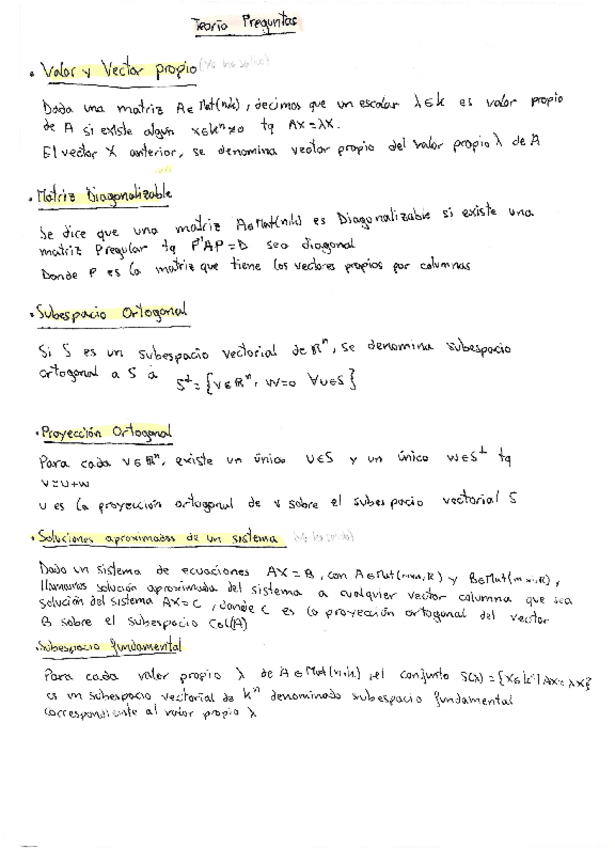 Teoría Preguntas
• Valor y Vector propio
Dada una matriz A∈Mat(n,k), decimos que un escalar λ∈k es valor propio
de A si existe algún x∈kⁿ≠0 tq AX=λX.
El vector X anterior, se denomina vector propio del valor propio λ de A
• Matriz Diagonalizable
Se dice que una matriz A∈Mat(n,k) es Diagonalizable si existe una
matriz P regular tq P⁻¹AP=D sea diagonal
Donde P es la matriz que tiene los vectores propios por columnas
• Subespacio Ortogonal
Si S es un subespacio vectorial de ℝⁿ, se denomina subespacio
ortogonal a S a S⊥={v∈ℝⁿ, vu=0 ∀u∈S}
• Proyección Ortogonal
Para cada v∈ℝⁿ, existe un único u∈S y un único w∈S⊥ tq
v=u+w
u es la proyección ortogonal de v sobre el subespacio vectorial S
• Soluciones aproximadas de un sistema
Dado un sistema de ecuaciones AX=B, con A∈Mat(mxn,ℝ) y B∈Mat(mx1,ℝ),
llamamos solución aproximada del sistema a cualquier vector columna que sea
solución del sistema AX=C, donde C es la proyección ortogonal del vector
B sobre el subespacio Col(A)
• Subespacio fundamental
Para cada valor propio λ de A∈Mat(n,k), el conjunto S(λ)={X∈kⁿ|AX=λX}
es un subespacio vectorial de kⁿ denominado subespacio fundamental
correspondiente al valor propio λ